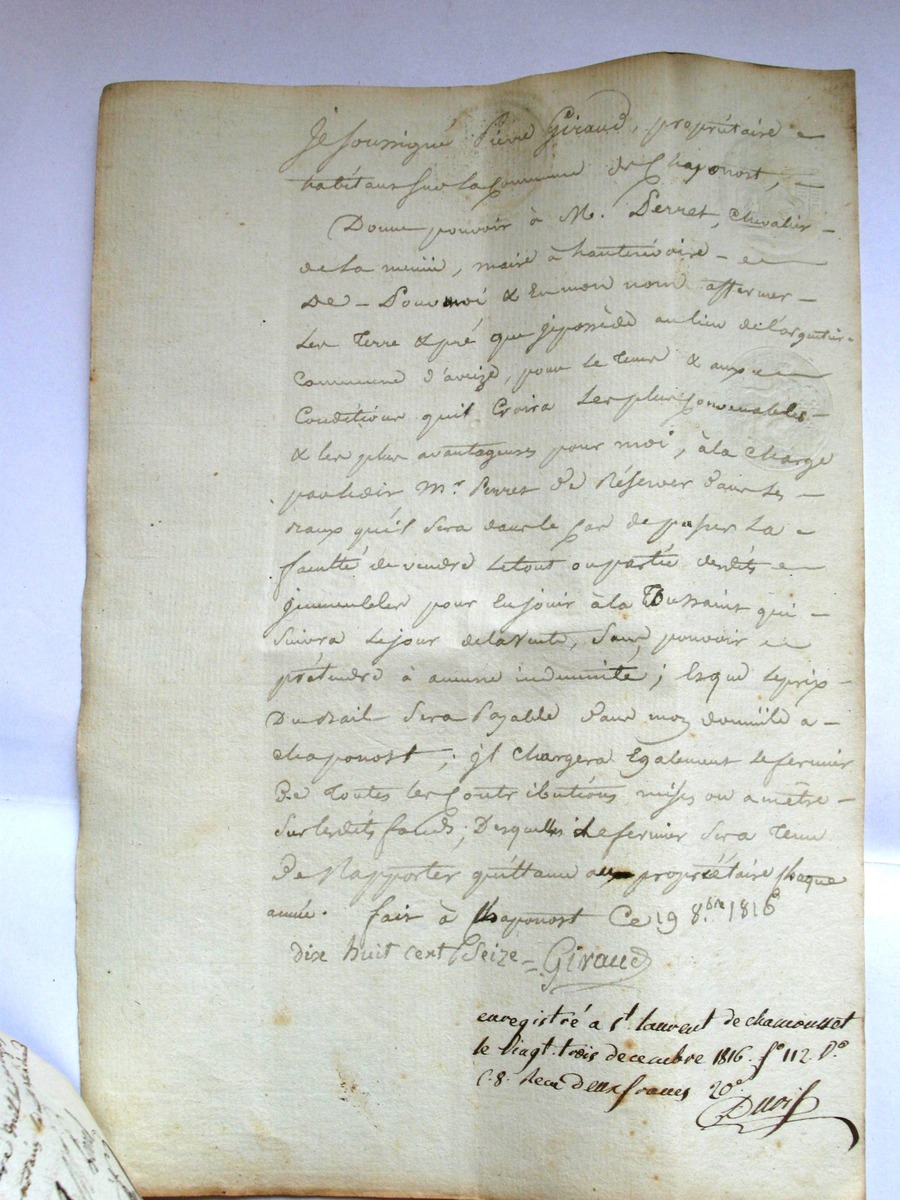 Je soussigné Pierre Giraud, propriétaire
habitant sur la Commune de Chaponost,
Donne pouvoir à M. Perret, chevalier
de la, maire à hauterivoire
De Pour moi & En mon nom affermer
Les Terre & pré que je possède au lieu de l'argentier
Commune d'aveize, pour le Tems & aux
Conditions quil Croira Les plus Convenables
& les plus avantageuses pour moi, à la charge
par ledit Mr. Perret De Réserver dans Les
Beaux qu'il Sera dans le Cas de passer La
faculté de vendre Letout ou partie desdits
jmmeubles pour En jouir à la Toussaint qui
Suivra Lejour delavente, Sans pouvoir
prétendre à aucune indemnité; Et que Leprix
Du Bail Sera Payable dans mon domicile a
chaponost; jl chargera Egalement Le fermier
De Toutes les Contributions mises ou a mêtre
Sur lesdits fonds; Desquelles Le fermier Sera Tenu
De Rapporter quittance au propriétaire Chaque
année. fait à Chaponost Ce 19 8.bre 1816
dix huit cent Seize = Giraud
enregistré a St laurent de chamousset
le vingt trois decembre 1816. fo 112. Vo
C. 8. Recu deux francs 20c